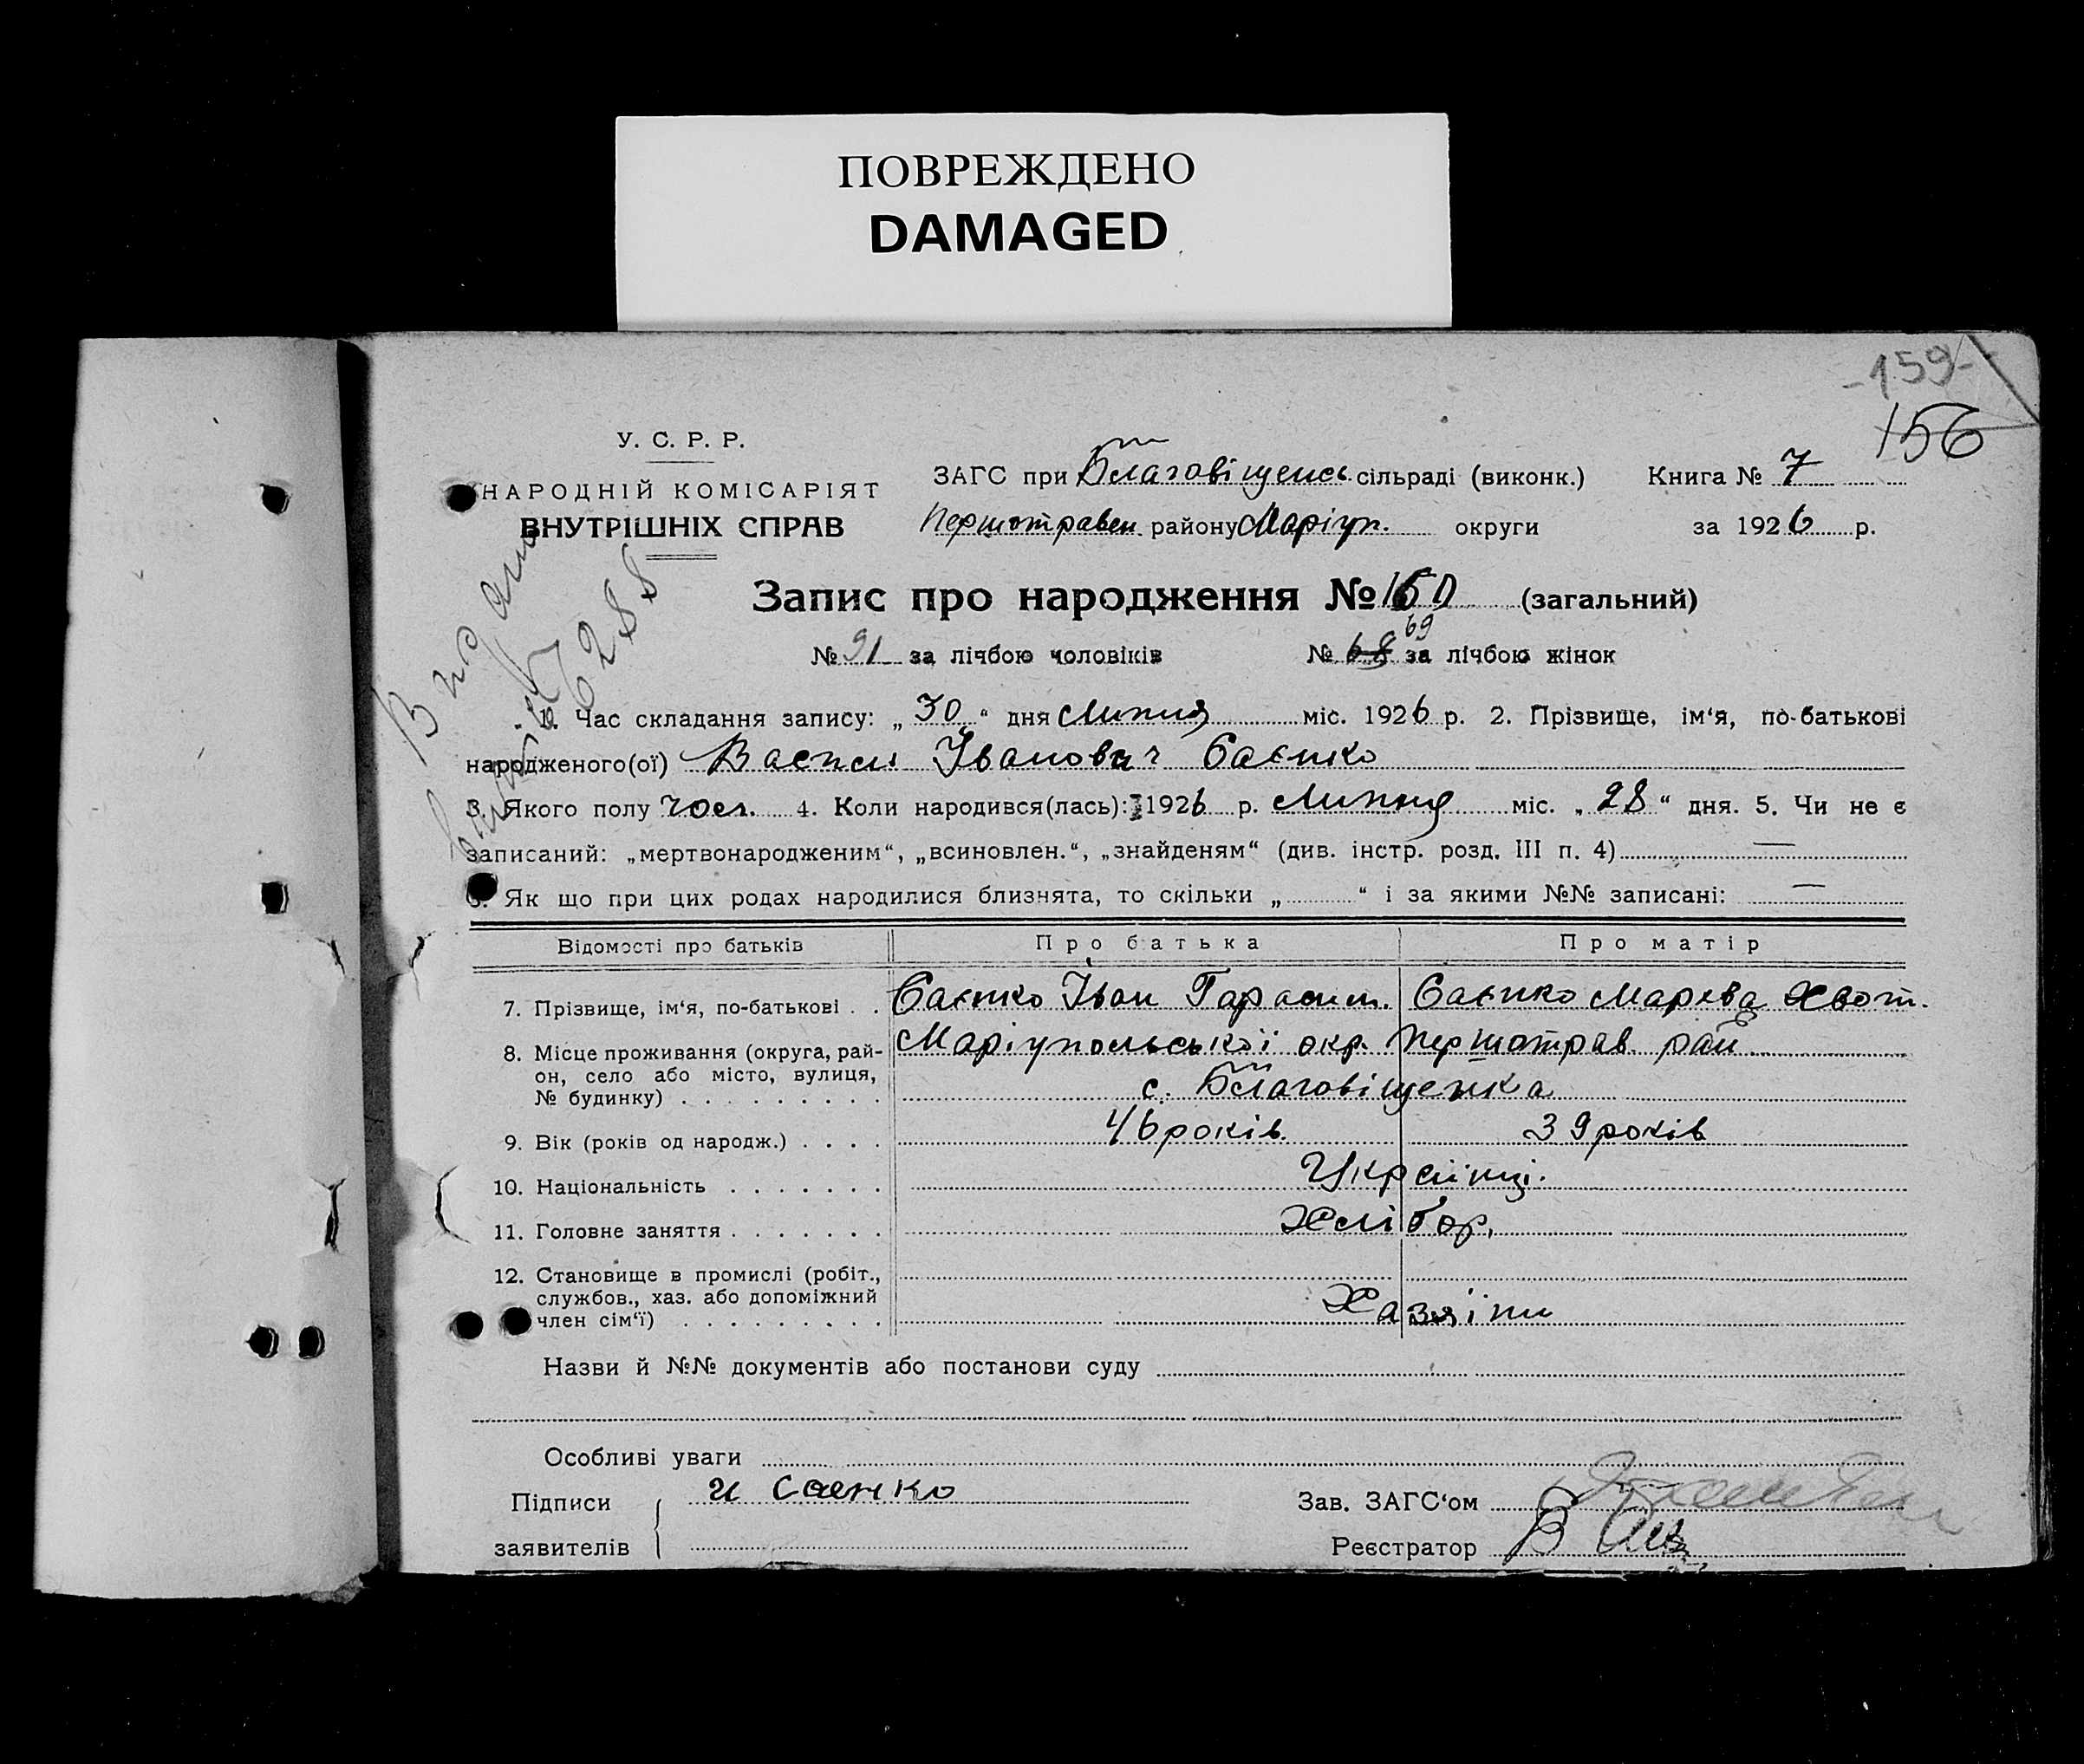 ПОВРЕЖДЕНО
DAMAGED
-159-
156
У. С. Р. Р.
НАРОДНІЙ КОМІСАРІЯТ
ВНУТРІШНІХ СПРАВ
ЗАГС при Благовіщенсь. сільраді (виконк.) Книга № 7
Першотравен. району Маріуп. округи за 1926 р.
Видано
6288
Запис про народження № 160 (загальний)
№ 91 за лічбою чоловіків № 68 69 за лічбою жінок
1. Час складання запису: „30“ дня Липня міс. 1926 р. 2. Прізвище, ім‘я, по-батькові
народженого(ої) Василь Іванович Саєнко
3. Якого полу чол. 4. Коли народився(лась): 1926 р. Липня міс. „28“ дня. 5. Чи не є
записаний: „мертвонародженим“, „всиновлен.“, „знайденям“ (див. інстр. розд. III п. 4) —
6. Як що при цих родах народилися близнята, то скільки „ “ і за якими №№ записані: —
Відомості про батьків Про батька Про матір
7. Прізвище, ім‘я, по-батькові . . Саєнко Іван Гарасим. Саєнко Марєва Хвот.
8. Місце проживання (округа, рай- Маріупольської окр. Першотрав. рай
он, село або місто, вулиця, с. Благовіщенка
№ будинку) . . . . . . . . .
9. Вік (років од народж.) . . . . 46 років. 39 років
10. Національність . . . . . . . Українці.
11. Головне заняття . . . . . . . Хлібор.
12. Становище в промислі (робіт.,
службов., хаз. або допоміжний
член сім‘ї) . . . . . . . . . Хазяїни
Назви й №№ документів або постанови суду
Особливі уваги
Підписи и Саенко Зав. ЗАГС‘ом
заявителів Реєстратор В